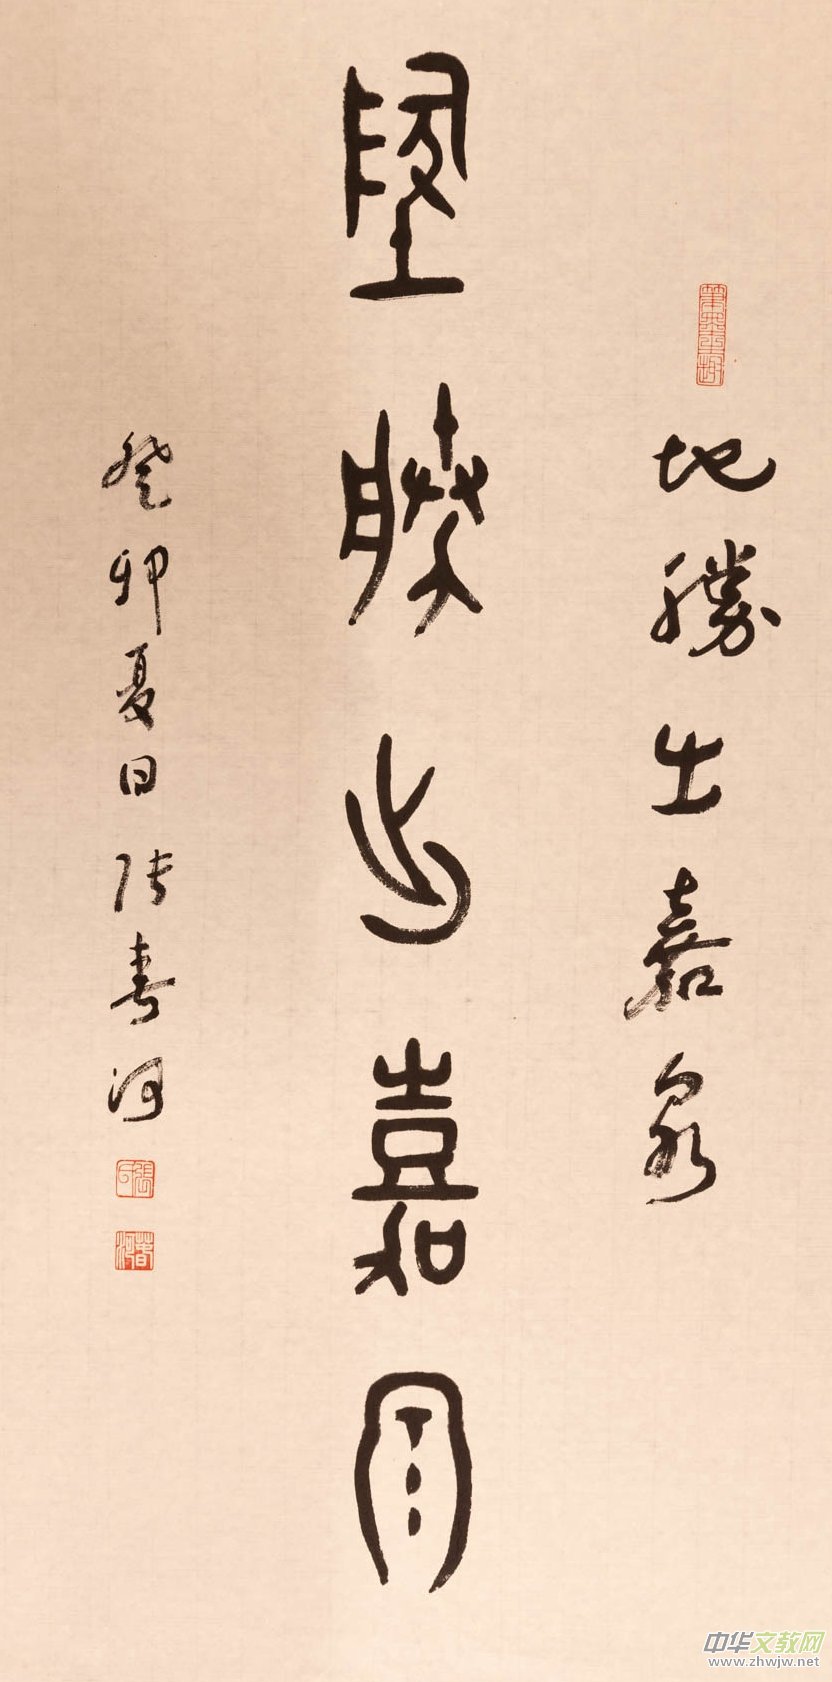 地勝出嘉泉
地勝出嘉泉
癸卯夏日张春河
春河
中华文教网
www.zhwjw.net